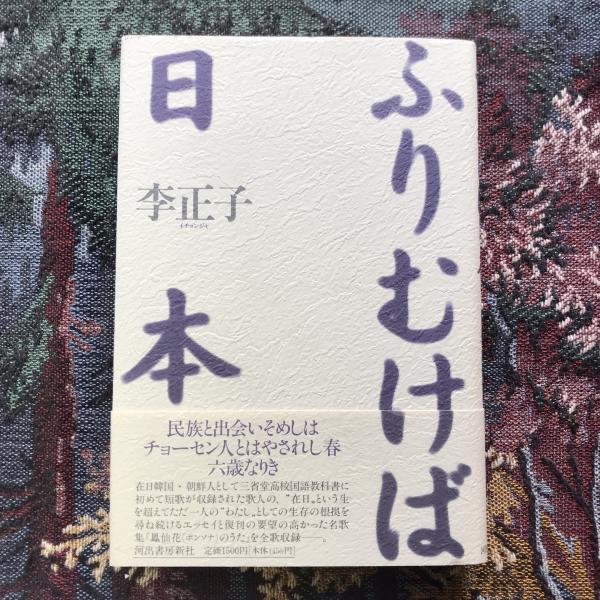 ふりむけば
日本
李正子
イチョンジャ
民族と出会いそめしは
チョーセン人とはやされし春
六歳なりき
在日韓国・朝鮮人として三省堂高校国語教科書に
初めて短歌が収録された歌人の、“在日”という生
を超えてただ一人の“わたし”としての生存の根拠を
尋ね続けるエッセイと復刊の要望の高かった名歌
集「鳳仙花(ポンソナ)のうた」を全歌収録――。
河出書房新社 定価1500円[本体1456円]